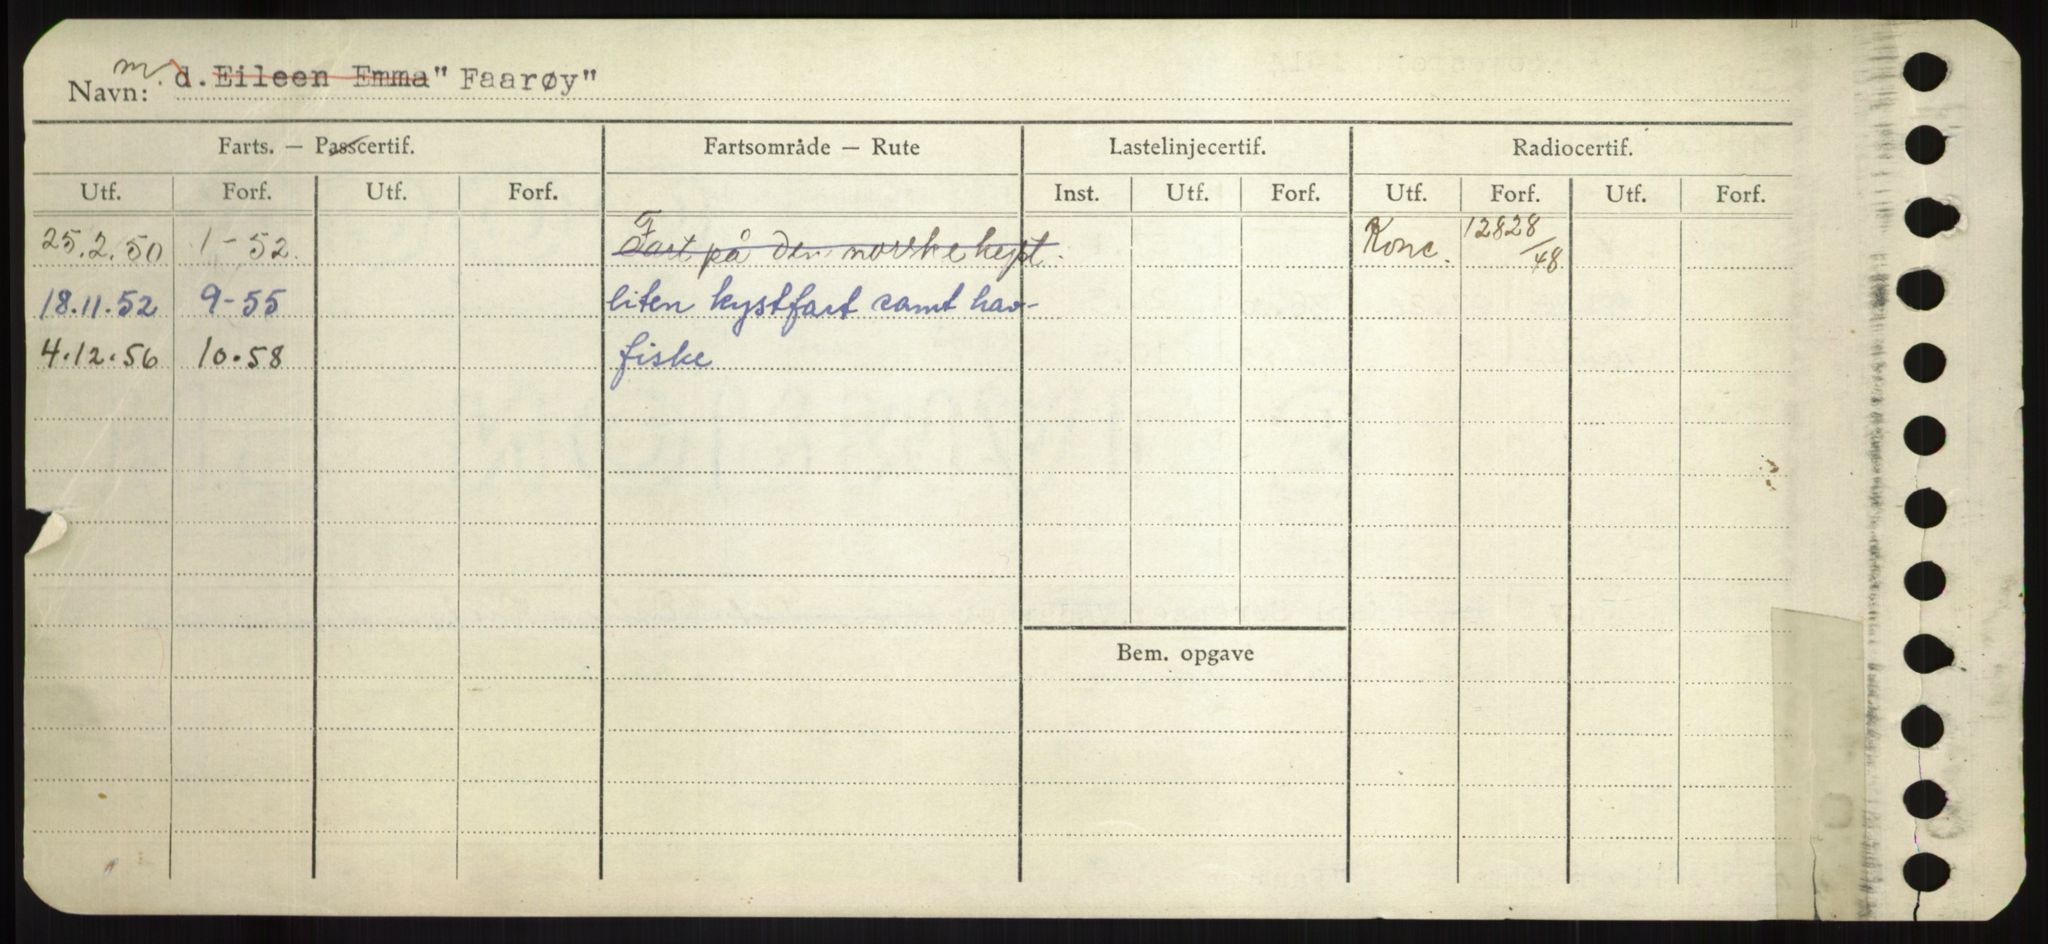 m.
Navn: d. Eileen Emma "Faarøy"
Farts. — Passcertif. Fartsområde — Rute Lastelinjecertif. Radiocertif.
Utf. Forf. Utf. Forf. Inst. Utf. Forf. Utf. Forf. Utf. Forf.
25.2.50 1-52. Fart på den norske kyst. Konc. 12828/48
18.11.52 9-55 liten kystfart samt hav-
4.12.56 10.58 fiske
Bem. opgave